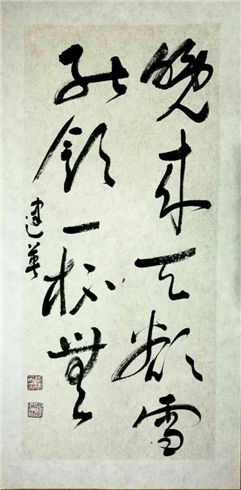 晚来天欲雪
能饮一杯無
建英